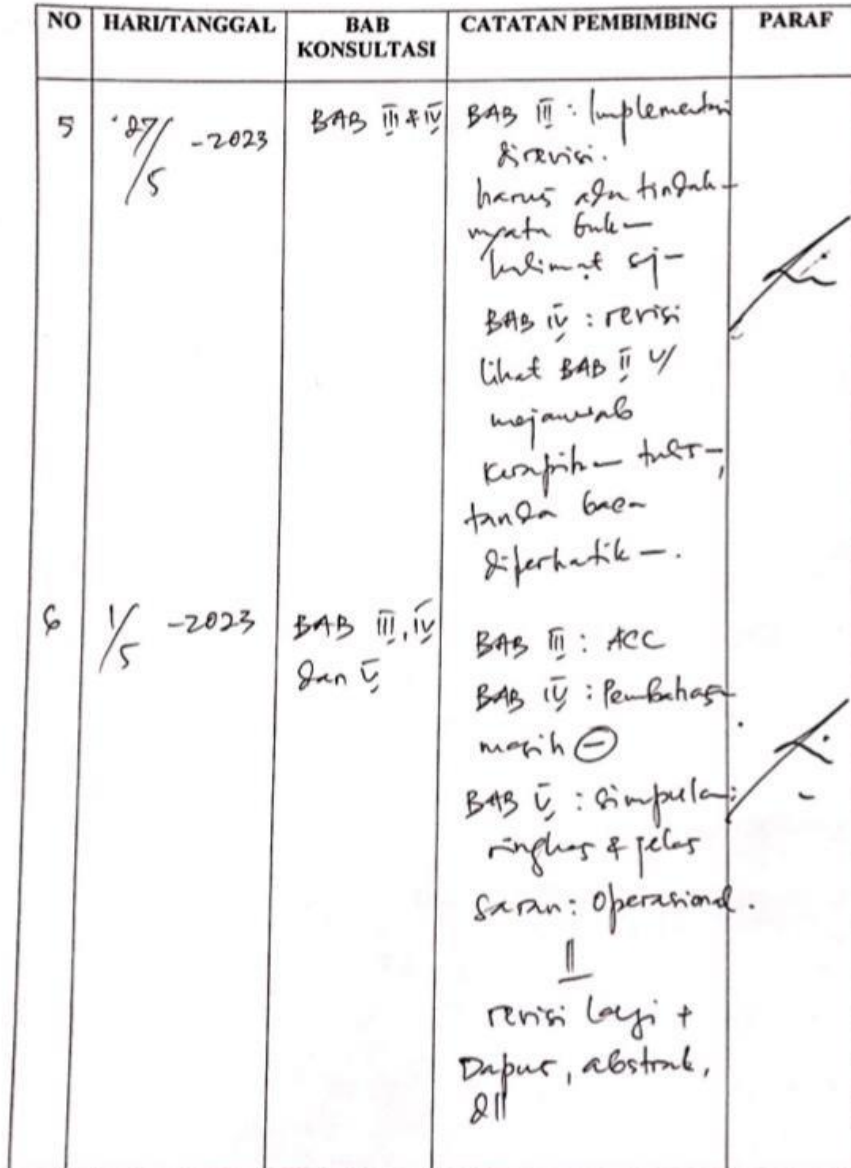 NO HARI/TANGGAL BAB KONSULTASI CATATAN PEMBIMBING PARAF
5 27/5 -2023 BAB III & IV BAB III : Implementasi
direvisi.
harus ada tindak
nyata buk
kalimat sj
BAB IV : revisi
lihat BAB II u/
mejawab
Kerapihan tulis,
tanda baca
diperhatik.
6 1/5 -2023 BAB III, IV
dan V
BAB III : ACC
BAB IV : Pembahas
masih -
BAB V : Simpulan :
ringkas & jelas
Saran : Operasional.
revisi lagi +
Dapus, abstrak,
dll